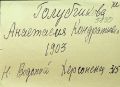 Голубчикова
Анастасия Кондратьевна
1903
Н. Водопой Херсонск 325